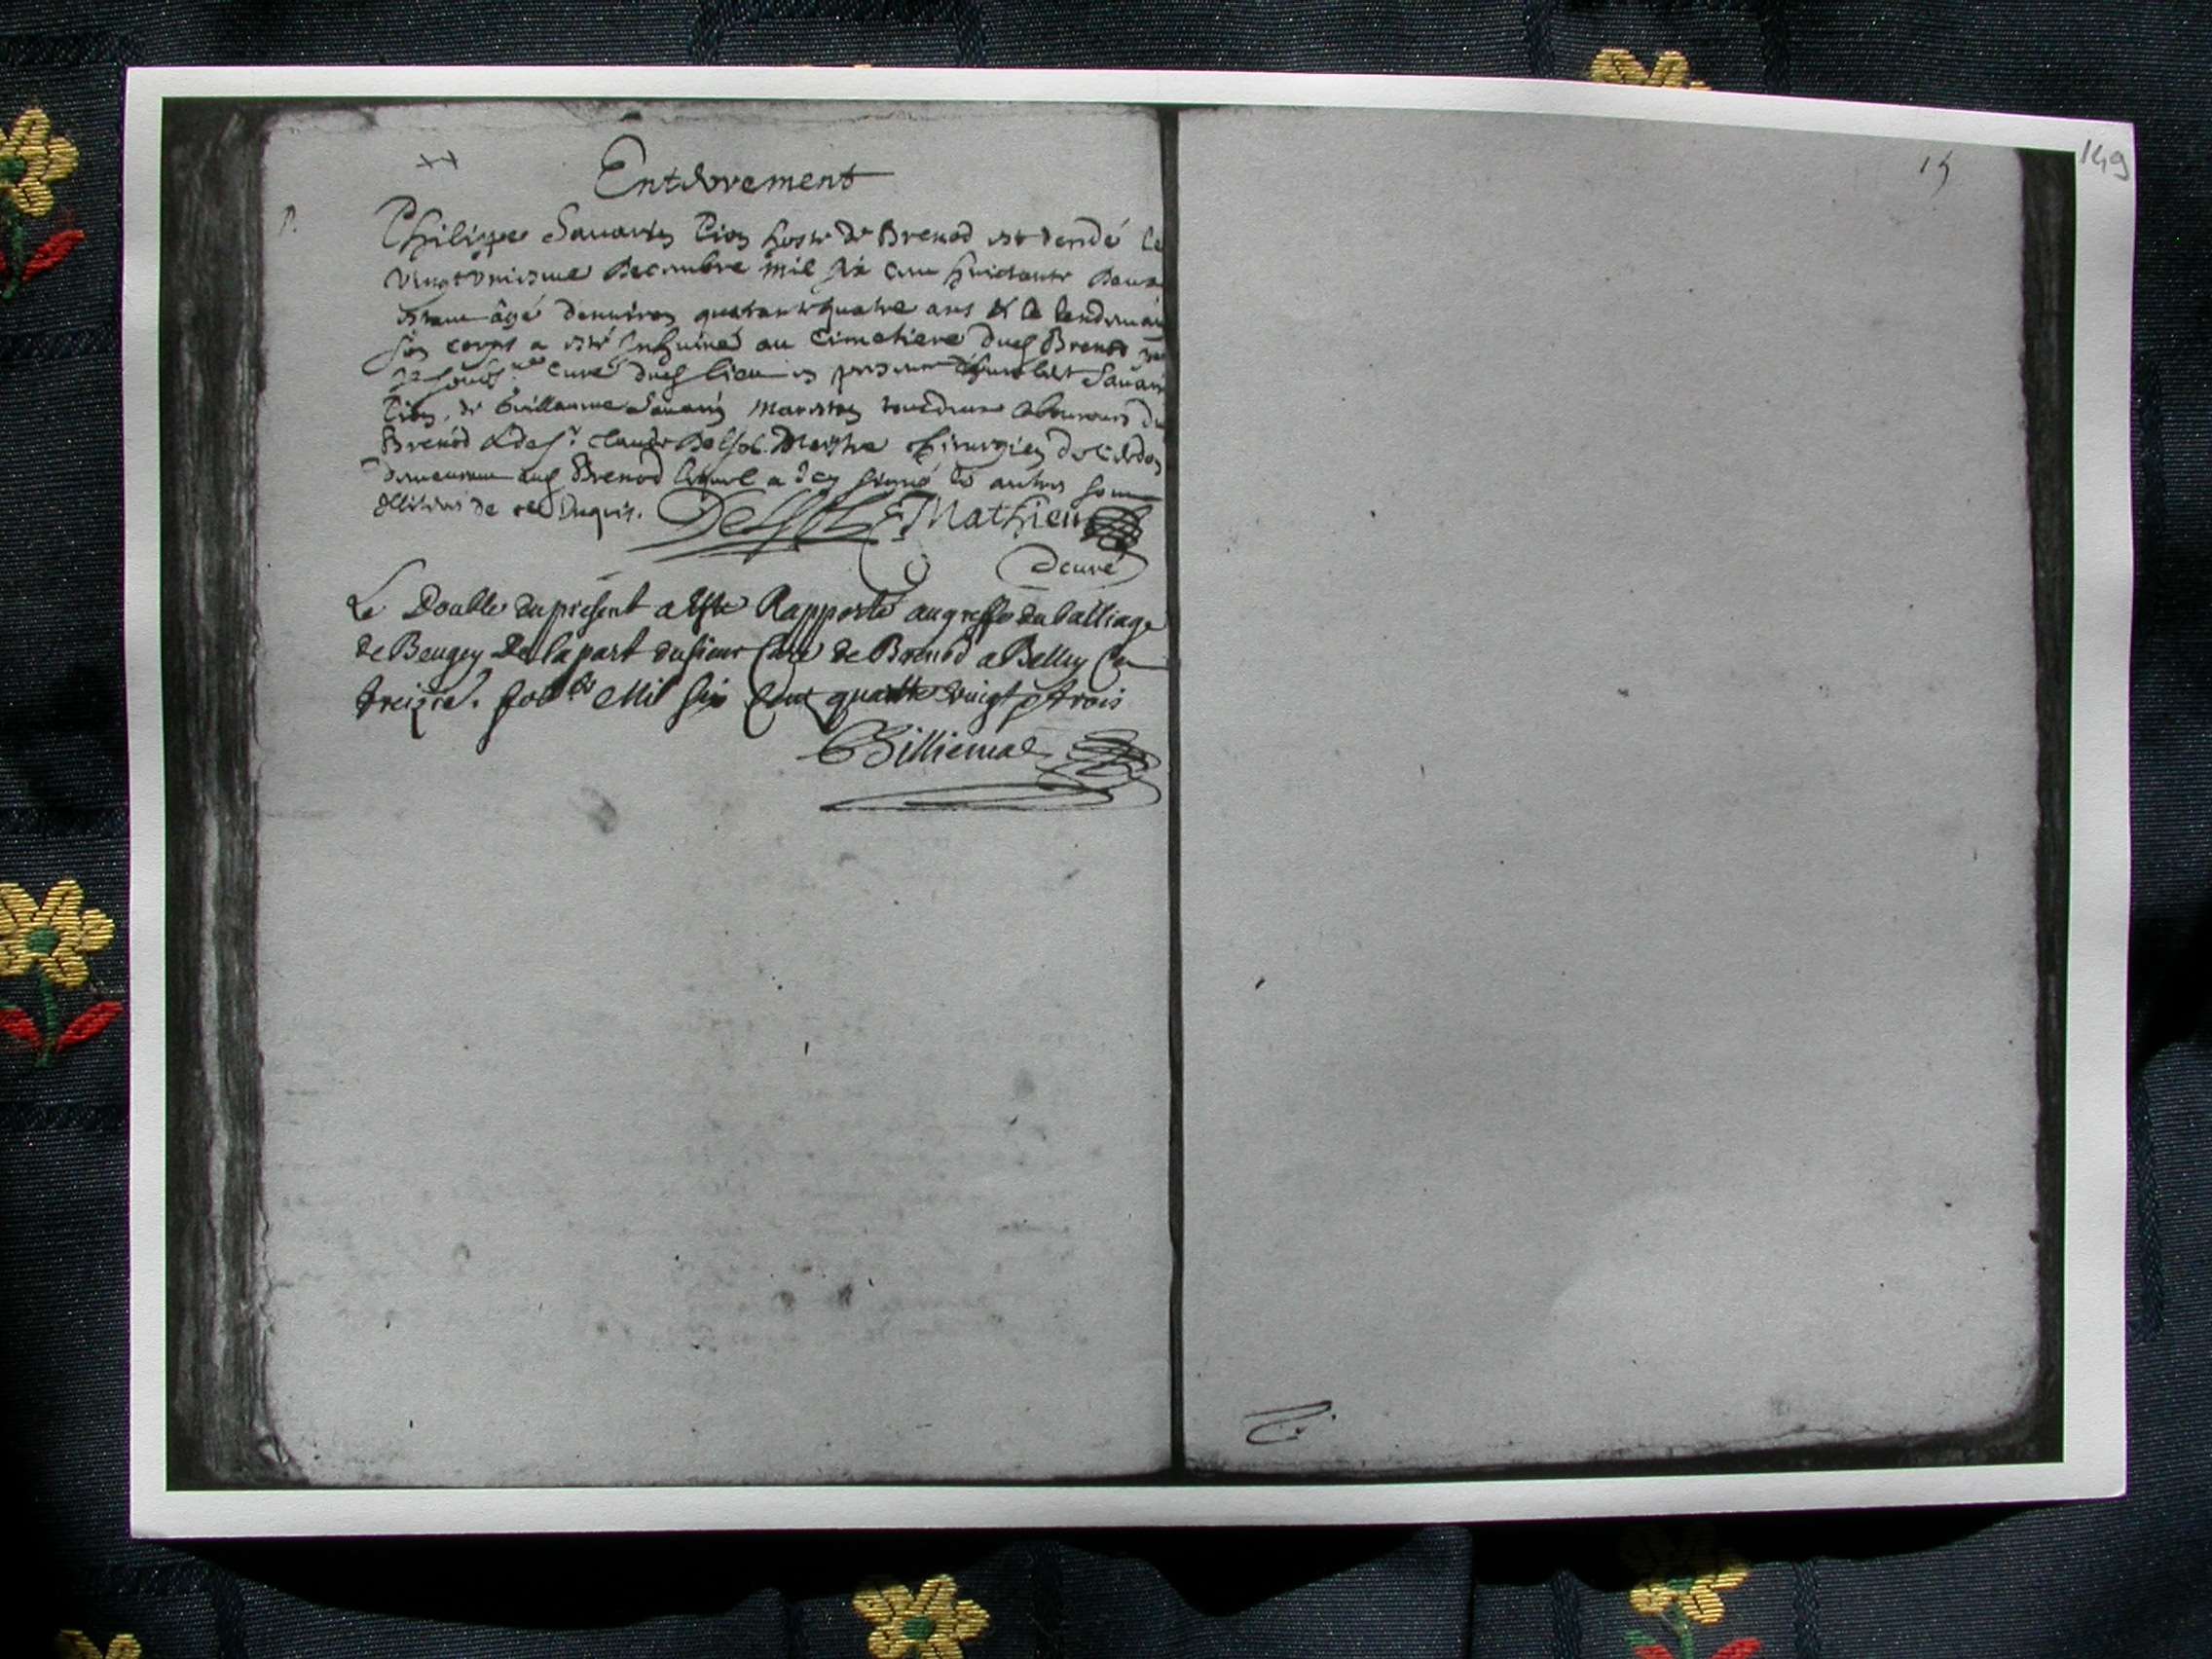 149
15
Enterrement
P.
Philippe Sauarin Tion hoste de Brenod est decedé le
vingt vniesme decembre mil six cens huictante deux
estant âgé denuiron quarante quatre ans & le lendemain
son corps a esté Inhumé au Cimetiere dud Brenod
curé dud lieu en presence Sauarin
Tion, de Guillaume Sauarin laboureurs de
Brenod & de sr Claude Delsol Maistre chirurgien de Cerdon
demeurant aud Brenod lequel a icy signé les autres sont
illiteres de ce Enquis. Delsol Mathieu
curé
Le Double du present a esté Rapporté au greffe du balliage
de Beugey De la part du sieur Curé de Brenod a Belley Ce
treizie. Mil six Cent quattre vingt & trois
Billiemaz